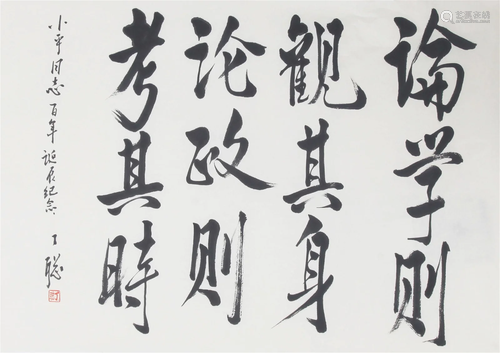 論学则
観其身
论政则
考其時
小平同志百年诞辰纪念
丁聪